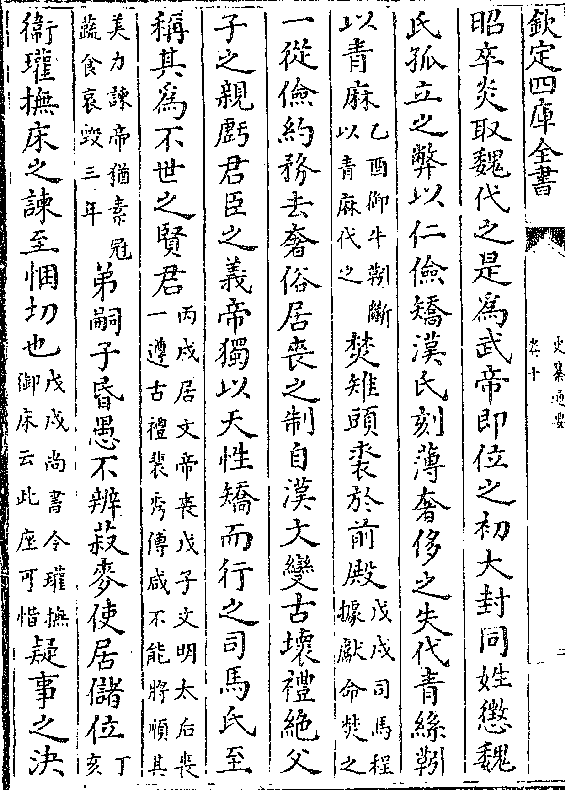 欽定四庫全書
史纂通要
卷十
昭卒炎取魏代之是爲武帝即位之初大封同姓懲魏
氏孤立之弊以仁儉矯漢氏刻薄奢侈之失代青絲靷
以青麻乙酉御牛靷斷以青麻代之焚雉頭裘於前殿戊戌司馬程據獻命焚之
一從儉約務去奢俗居喪之制自漢文變古壞禮絶父
子之親虧君臣之義帝獨以天性矯而行之司馬氏至
稱其爲不世之賢君丙戌居文帝喪戊子文明太后喪一遵古禮裴秀傅咸不能將順其
美力諫帝猶素冠蔬食哀毁三年第嗣子昏愚不辨菽麥使居儲位丁亥
衛瓘撫床之諫至悃切也戊戌尚書令瓘撫御床云此座可惜疑事之決